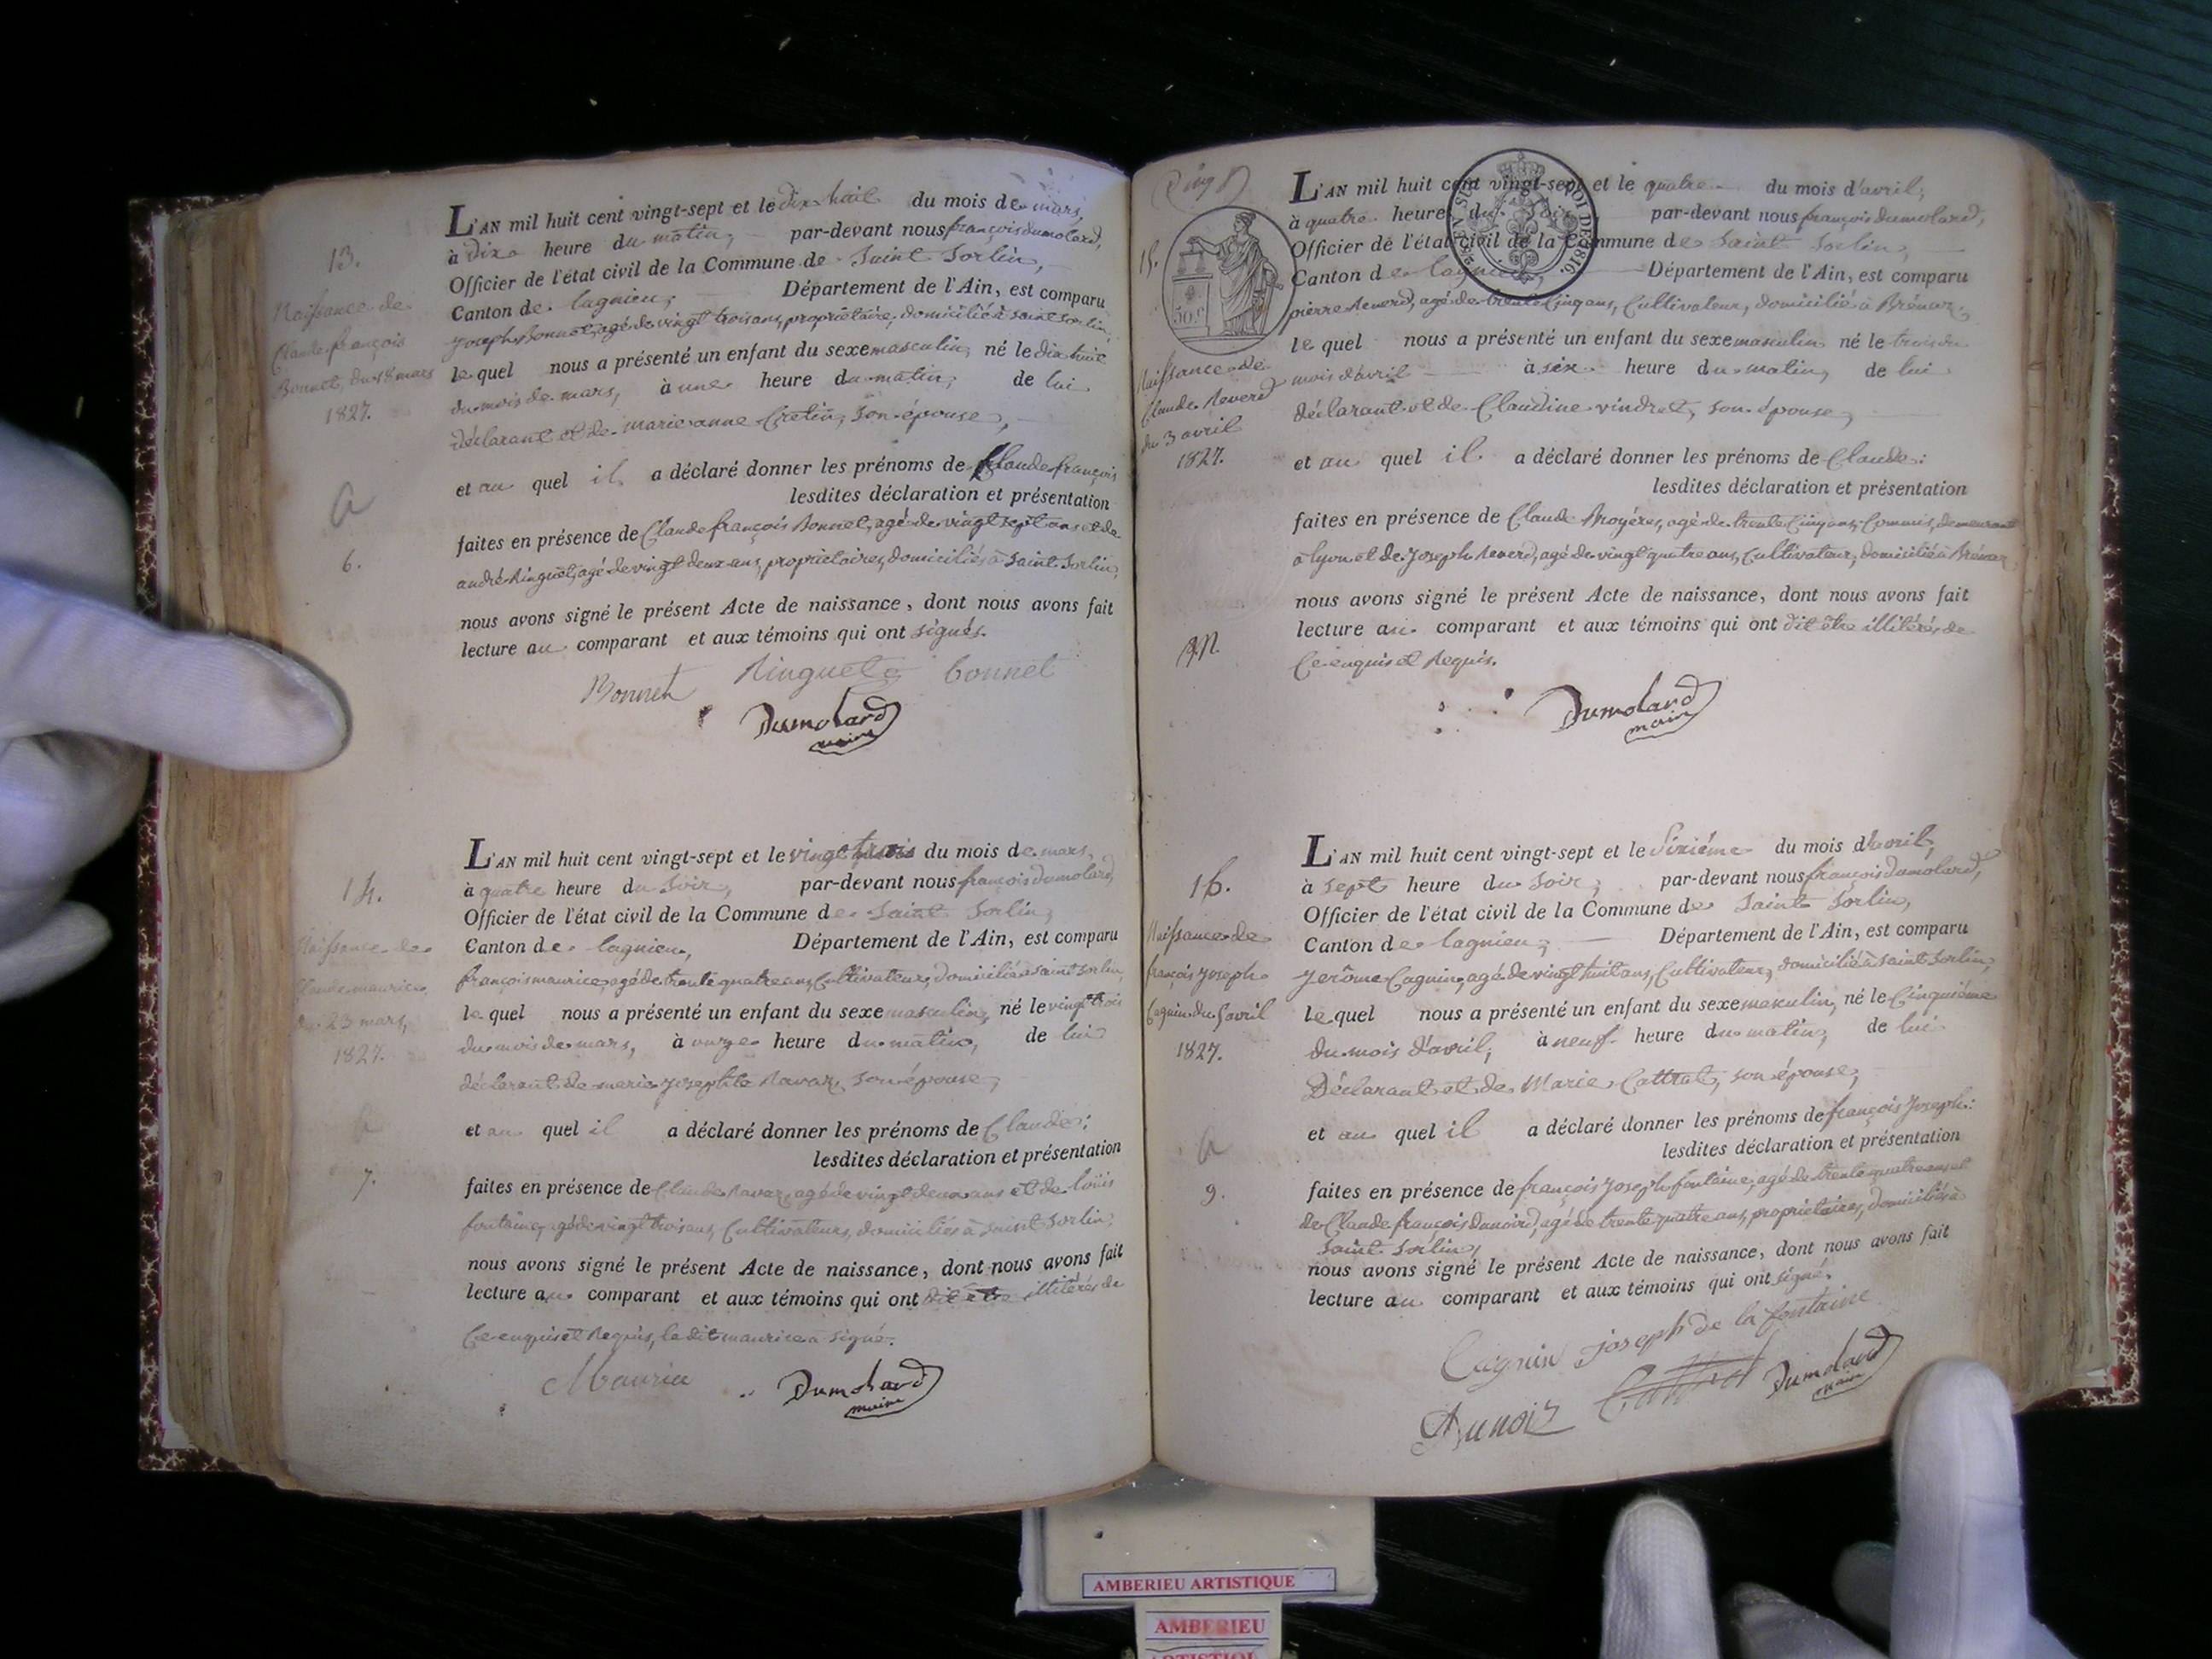 13.
Naissance de
Claude françois
Bonnet, du 18 mars
1827.
a
6.
L'AN mil huit cent vingt-sept et le dix huit du mois de mars,
à dix heure du matin, par-devant nous françois dumolard,
Officier de l'état civil de la Commune de Saint Sorlin,
Canton de lagnieu, Département de l'Ain, est comparu
joseph Bonnet, agé de vingt trois ans, propriétaire, domicilié à saint sorlin,
le quel nous a présenté un enfant du sexe masculin, né le dix huit
du mois de mars, à une heure du matin, de lui
déclarant et de marie anne Cretin, son épouse,
et au quel il a déclaré donner les prénoms de Claude françois
lesdites déclaration et présentation
faites en présence de Claude françois Bonnet, agé de vingt sept ans et de
andré Ringuet, agé de vingt deux ans, propriétaires, domiciliés à Saint Sorlin,
nous avons signé le présent Acte de naissance, dont nous avons fait
lecture au comparant et aux témoins qui ont signés.
Bonnet Ringuet bonnet
Dumolard
maire
14.
Naissance de
Claude maurice,
du 23 mars,
1827.
a
7.
L'AN mil huit cent vingt-sept et le vingt trois du mois de mars,
à quatre heure du Soir, par-devant nous françois dumolard,
Officier de l'état civil de la Commune de Saint Sorlin,
Canton de lagnieu, Département de l'Ain, est comparu
françois maurice, agé de trente quatre ans, Cultivateur, domicilié à saint sorlin,
le quel nous a présenté un enfant du sexe masculin, né le vingt trois
du mois de mars, à onze heure du matin, de lui
déclarant de marie josephte Ravaz, son épouse,
et au quel il a déclaré donner les prénoms de Claude;
lesdites déclaration et présentation
faites en présence de Claude Ravaz, agé de vingt deux ans et de loüis
fontaine, agé de vingt trois ans, Cultivateurs, domiciliés à saint sorlin,
nous avons signé le présent Acte de naissance, dont nous avons fait
lecture au comparant et aux témoins qui ont dit être illitérés de
Ce enquis et Requis, le dit maurice a signé.
Maurice Dumolard
maire
15.
50 C.
ROI DE
1816.
Naissance de
Claude Reverd
du 3 avril
1827.
m.
L'AN mil huit cent vingt-sept et le quatre du mois d'avril,
à quatre heure du Soir par-devant nous françois dumolard,
Officier de l'état civil de la Commune de Saint Sorlin,
Canton de lagnieu, Département de l'Ain, est comparu
pierre Reverd, agé de trente Cinq ans, Cultivateur, domicilié à Brénaz,
le quel nous a présenté un enfant du sexe masculin né le trois du
mois d'avril à six heure du matin, de lui
déclarant et de Claudine vindret, son épouse,
et au quel il a déclaré donner les prénoms de Claude:
lesdites déclaration et présentation
faites en présence de Claude agé de trente Cinq ans, Commis, demeurant
à lyon et de joseph Reverd, agé de vingt quatre ans, Cultivateur, domicilié à Brénaz,
nous avons signé le présent Acte de naissance, dont nous avons fait
lecture au comparant et aux témoins qui ont dit être illitérés de
Ce enquis et Requis.
Dumolard
maire
16.
Naissance de
françois joseph
Cagnin du 5 avril
1827.
a
9.
L'AN mil huit cent vingt-sept et le Sixiéme du mois d'avril,
à sept heure du Soir, par-devant nous françois dumolard,
Officier de l'état civil de la Commune de Saint Sorlin,
Canton de lagnieu, Département de l'Ain, est comparu
jerôme Cagnin, agé de vingt huit ans, Cultivateur, domicilié à saint sorlin,
le quel nous a présenté un enfant du sexe masculin, né le Cinquiéme
du mois d'avril, à neuf heure du matin, de lui
Déclarant et de Marie Cattrat, son épouse,
et au quel il a déclaré donner les prénoms de françois joseph:
lesdites déclaration et présentation
faites en présence de françois joseph fontaine, agé de trente quatre ans et
de Claude françois dunoird, agé de trente quatre ans, propriétaires, domiciliés à
saint Sorlin,
nous avons signé le présent Acte de naissance, dont nous avons fait
lecture au comparant et aux témoins qui ont signé.
Cagnin joseph de la fontaine
Dunoir Dumolard
maire
AMBERIEU ARTISTIQUE
AMBERIEU
ARTISTIQUE